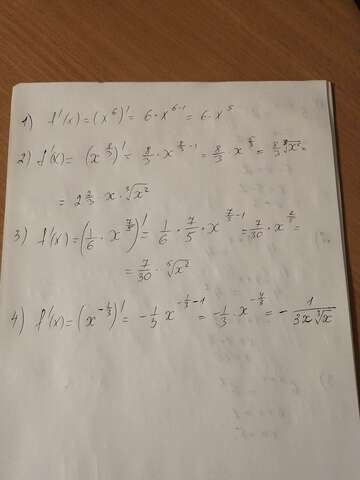 1) f'(x) = (x^6)' = 6 · x^{6-1} = 6 · x^5
2) f'(x) = (x^{8/3})' = 8/3 · x^{8/3 - 1} = 8/3 · x^{5/3} = 8/3 ∛(x^5) =
= 2 2/3 x · ∛(x^2)
3) f'(x) = (1/6 · x^{7/5})' = 1/6 · 7/5 · x^{7/5 - 1} = 7/30 · x^{2/5} =
= 7/30 · ⁵√(x^2)
4) f'(x) = (x^{-1/3})' = -1/3 x^{-1/3 - 1} = -1/3 · x^{-4/3} = - 1/(3x∛x)